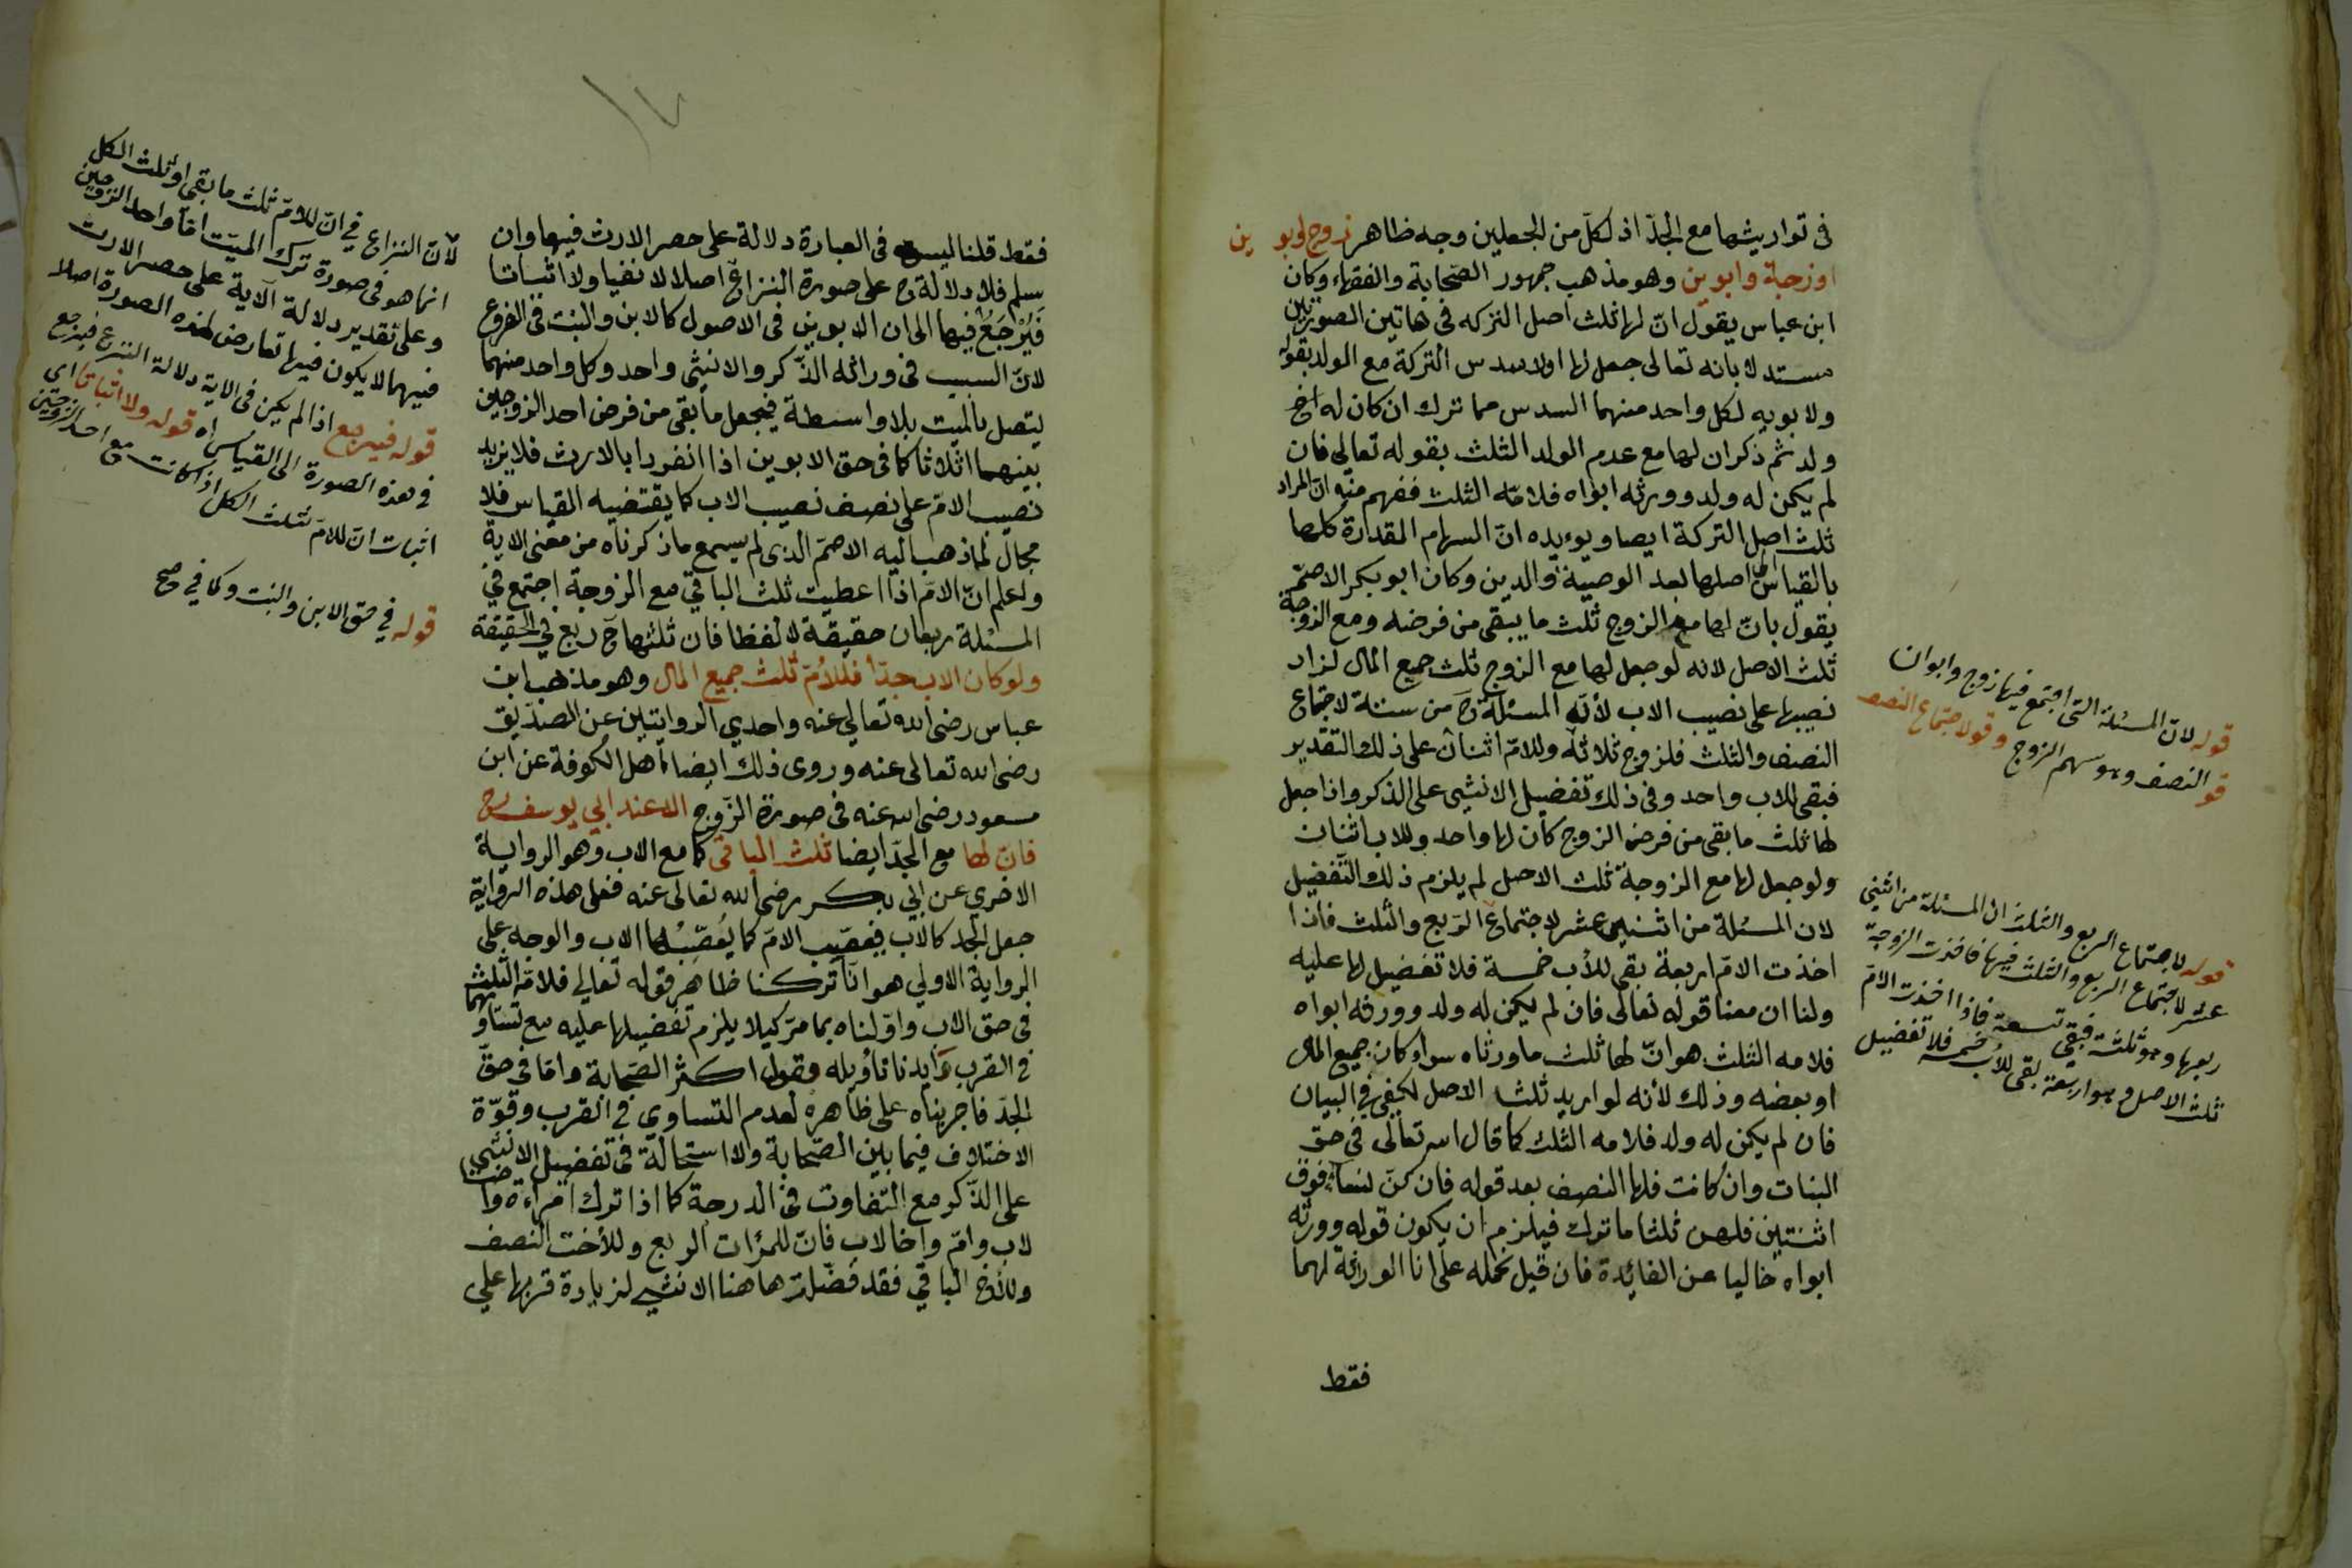 في تواريثها مع الجدّ اذ لكلّ من الجعلين وجه ظاهر زوج وابوين
او زوجة وابوين وهو مذهب جمهور الصّحابة والفقهاء وكان
ابن عباس يقول انّ لها ثلث اصل التركه في هاتين الصورتين
مستدلا بانه تعالى جعل لها اولا سدس التركة مع الولد بقوله
ولابويه لكل واحد منهما السدس مما ترك ان كان له اخ
ولد ثم ذكر ان لها مع عدم الولد الثلث بقوله تعالى فان
لم يكن له ولد وورثه ابواه فلامّه الثلث ففهم منه انّ المراد
ثلث اصل التركة ايضا ويوءيده انّ السهام المقدارة كلها
بالقياس الى اصلها بعد الوصية والدين وكان ابو بكر الاصمّ
يقول بانّ لها مع الزوج ثلث ما يبقى من فرضه ومع الزوجة
ثلث الاصل لانه لو جعل لها مع الزوج ثلث جميع المال لزاد
نصيبها على نصيب الاب لأنّه المسئلة ح من ستة لاجتماع
النصف والثلث فلزوج ثلاثة وللامّ اثنان على ذلك التقدير
فبقى للاب واحد وفى ذلك تفضيل الانثى على الذكر واذا جعل
لها ثلث ما بقى من فرض الزوج كان لها واحد وللاب اثنان
ولو جعل لها مع الزوجة ثلث الاصل لم يلزم ذلك التفضيل
لان المسئلة من اثنين عشر لاجتماع الربع والثلث فاذا
اخذت الامّ اربعة بقى للأب خمسة فلا تفضيل لها عليه
ولنا ان معنا قوله تعالى فان لم يكن له ولد وورثه ابواه
فلامه الثلث هو انّ لها ثلث ما ورثاه سواء كان جميع المال
او بعضه وذلك لأنه لو اريد ثلث الاصل لكفى في البيان
فان لم يكن له ولد فلامه الثلث كما قال الله تعالى في حق
البنات وان كانت فلها النصف بعد قوله فان كنّ نساء فوق
اثنتين فلهن ثلثا ما ترك فيلزم ان يكون قوله وورثه
ابواه خاليا عن الفائدة فان قيل نحمله على انا الوراثة لهما
فقط
قوله لانّ المسئلة التى اجتمع فيها زوج وابوان
قو النصف وهو سهم الزوج وقو لاجتماع النصف
قوله لاجتماع الربع والثلث ان المسئلة من اثنى
عشر لاجتماع الربع والثلث فيها فاخذت الزوجة
ربعها وهو ثلثة فبقى تسعة فاذا اخذت الامّ
ثلث الاصل وهو اربعة بقى للأب خمسة فلا تفضيل
فقط قلنا ليس في العبارة دلالة على حصر الارث فيهما وان
سلم فلا دلالة ح على صورة النزاع اصلا لا نفيا ولا اثباتا
فَيُرْجَعُ فيها الى ان الابوين في الاصول كالابن والبنت في الفروع
لانّ السبب في وراثه الذّكر والانثى واحد وكل واحد منهما
يتصل بالميت بلا واسطة فيجعل ما بقى من فرض احد الزوجين
بينهما اثلاثا كما في حق الابوين اذا انفردا بالارث فلا يزيد
نصيب الامّ على نصف نصيب الاب كما يقتضيه القياس فلا
مجال لما ذهب اليه الاصمّ الذى لم يسمع ما ذكرناه من معنى الاية
واعلم انّ الامّ اذا اعطيت ثلث الباقي مع الزوجة اجتمع في
المسئلة ربعان حقيقة لا لفظا فان ثلثها ح ربع في الحقيقة
ولو كان الاب جدّا فللأمّ ثلث جميع المال وهو مذهب ابن
عباس رضى الله تعالي عنه واحدي الروايتين عن الصدّيق
رضى الله تعالى عنه وروى ذلك ايضا اهل الكوفة عن ابن
مسعود رضى الله عنه في صورة الزّوج الا عند ابي يوسف رح
فان لها مع الجدّ ايضا ثلث الباقى كما مع الاب وهو الرواية
الاخري عن ابي بكر رضى الله تعالى عنه فعلى هذه الرواية
جعل الجد كالاب فيعصّب الامّ كما يُعَصّبُها الاب والوجه على
الرواية الاولي هو انا تركنا ظاهر قوله تعالي فلامّه الثلث
في حق الاب واوّلناه بما مرّ كيلا يلزم تفضيلها عليه مع تساويهما
في القرب وايدنا تأويله بقول اكثر الصّحابة وامّا في حقّ
الجدّ فاجريناه على ظاهره لعدم التساوي في القرب وقوّة
الاختلاف فيما بين الصّحابة ولا استحالة في تفضيل الانثى
على الذّكر مع التفاوت في الدرجة كما اذا ترك امراءة واختا
لاب وامّ واخا لاب فانّ للمرات الربع وللأخت النصف
وللأخ الباقي فقد فضّلت هاهنا الانثى لزيادة قربها على
لأنّ النزاع في انّ للامّ ثلث ما بقى او ثلث الكل
انما هو في صورة ترك الميّت امّا واحد الزوجين
وعلى تقدير دلالة الآية على حصر الارث
فيهما لا يكون فيها تعارض لهذه الصورة اصلا
قوله فيرجع اذا لم يكن في الاية دلالة النزاع فيرجع
في هذه الصورة الى القياس اه قوله ولا اثباتا اى
اثبات انّ للامّ ثلث الكل اذا كانت مع احد الزوجين
قوله في حق الابن والبنت وكما في صح